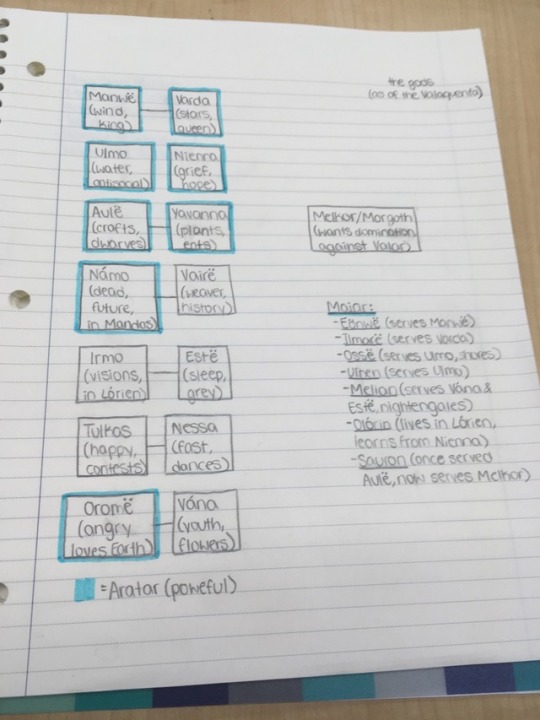 the gods
(as of the Valaquenta)
Manwë
(wind,
king)
Varda
(stars,
queen)
Ulmo
(water,
antisocial)
Nienna
(grief,
hope)
Aulë
(crafts,
dwarves)
Yavanna
(plants,
ents)
Melkor/Morgoth
(wants domination
against Valar)
Námo
(dead,
future,
in Mandos)
Vairë
(weaver,
history)
Irmo
(visions,
in Lórien)
Estë
(sleep,
grey)
Tulkas
(happy,
contests)
Nessa
(fast,
dances)
Oromë
(angry
loves Earth)
Vána
(youth,
flowers)
= Aratar (poweful)
Maiar:
-Eönwë (serves Manwë)
-Ilmarë (serves Varda)
-Ossë (serves Ulmo, shores)
-Uinen (serves Ulmo)
-Melian (serves Vána &
Estë, nightengales)
-Olórin (lives in Lórien,
learns from Nienna)
-Sauron (once served
Aulë, now serves Melkor)